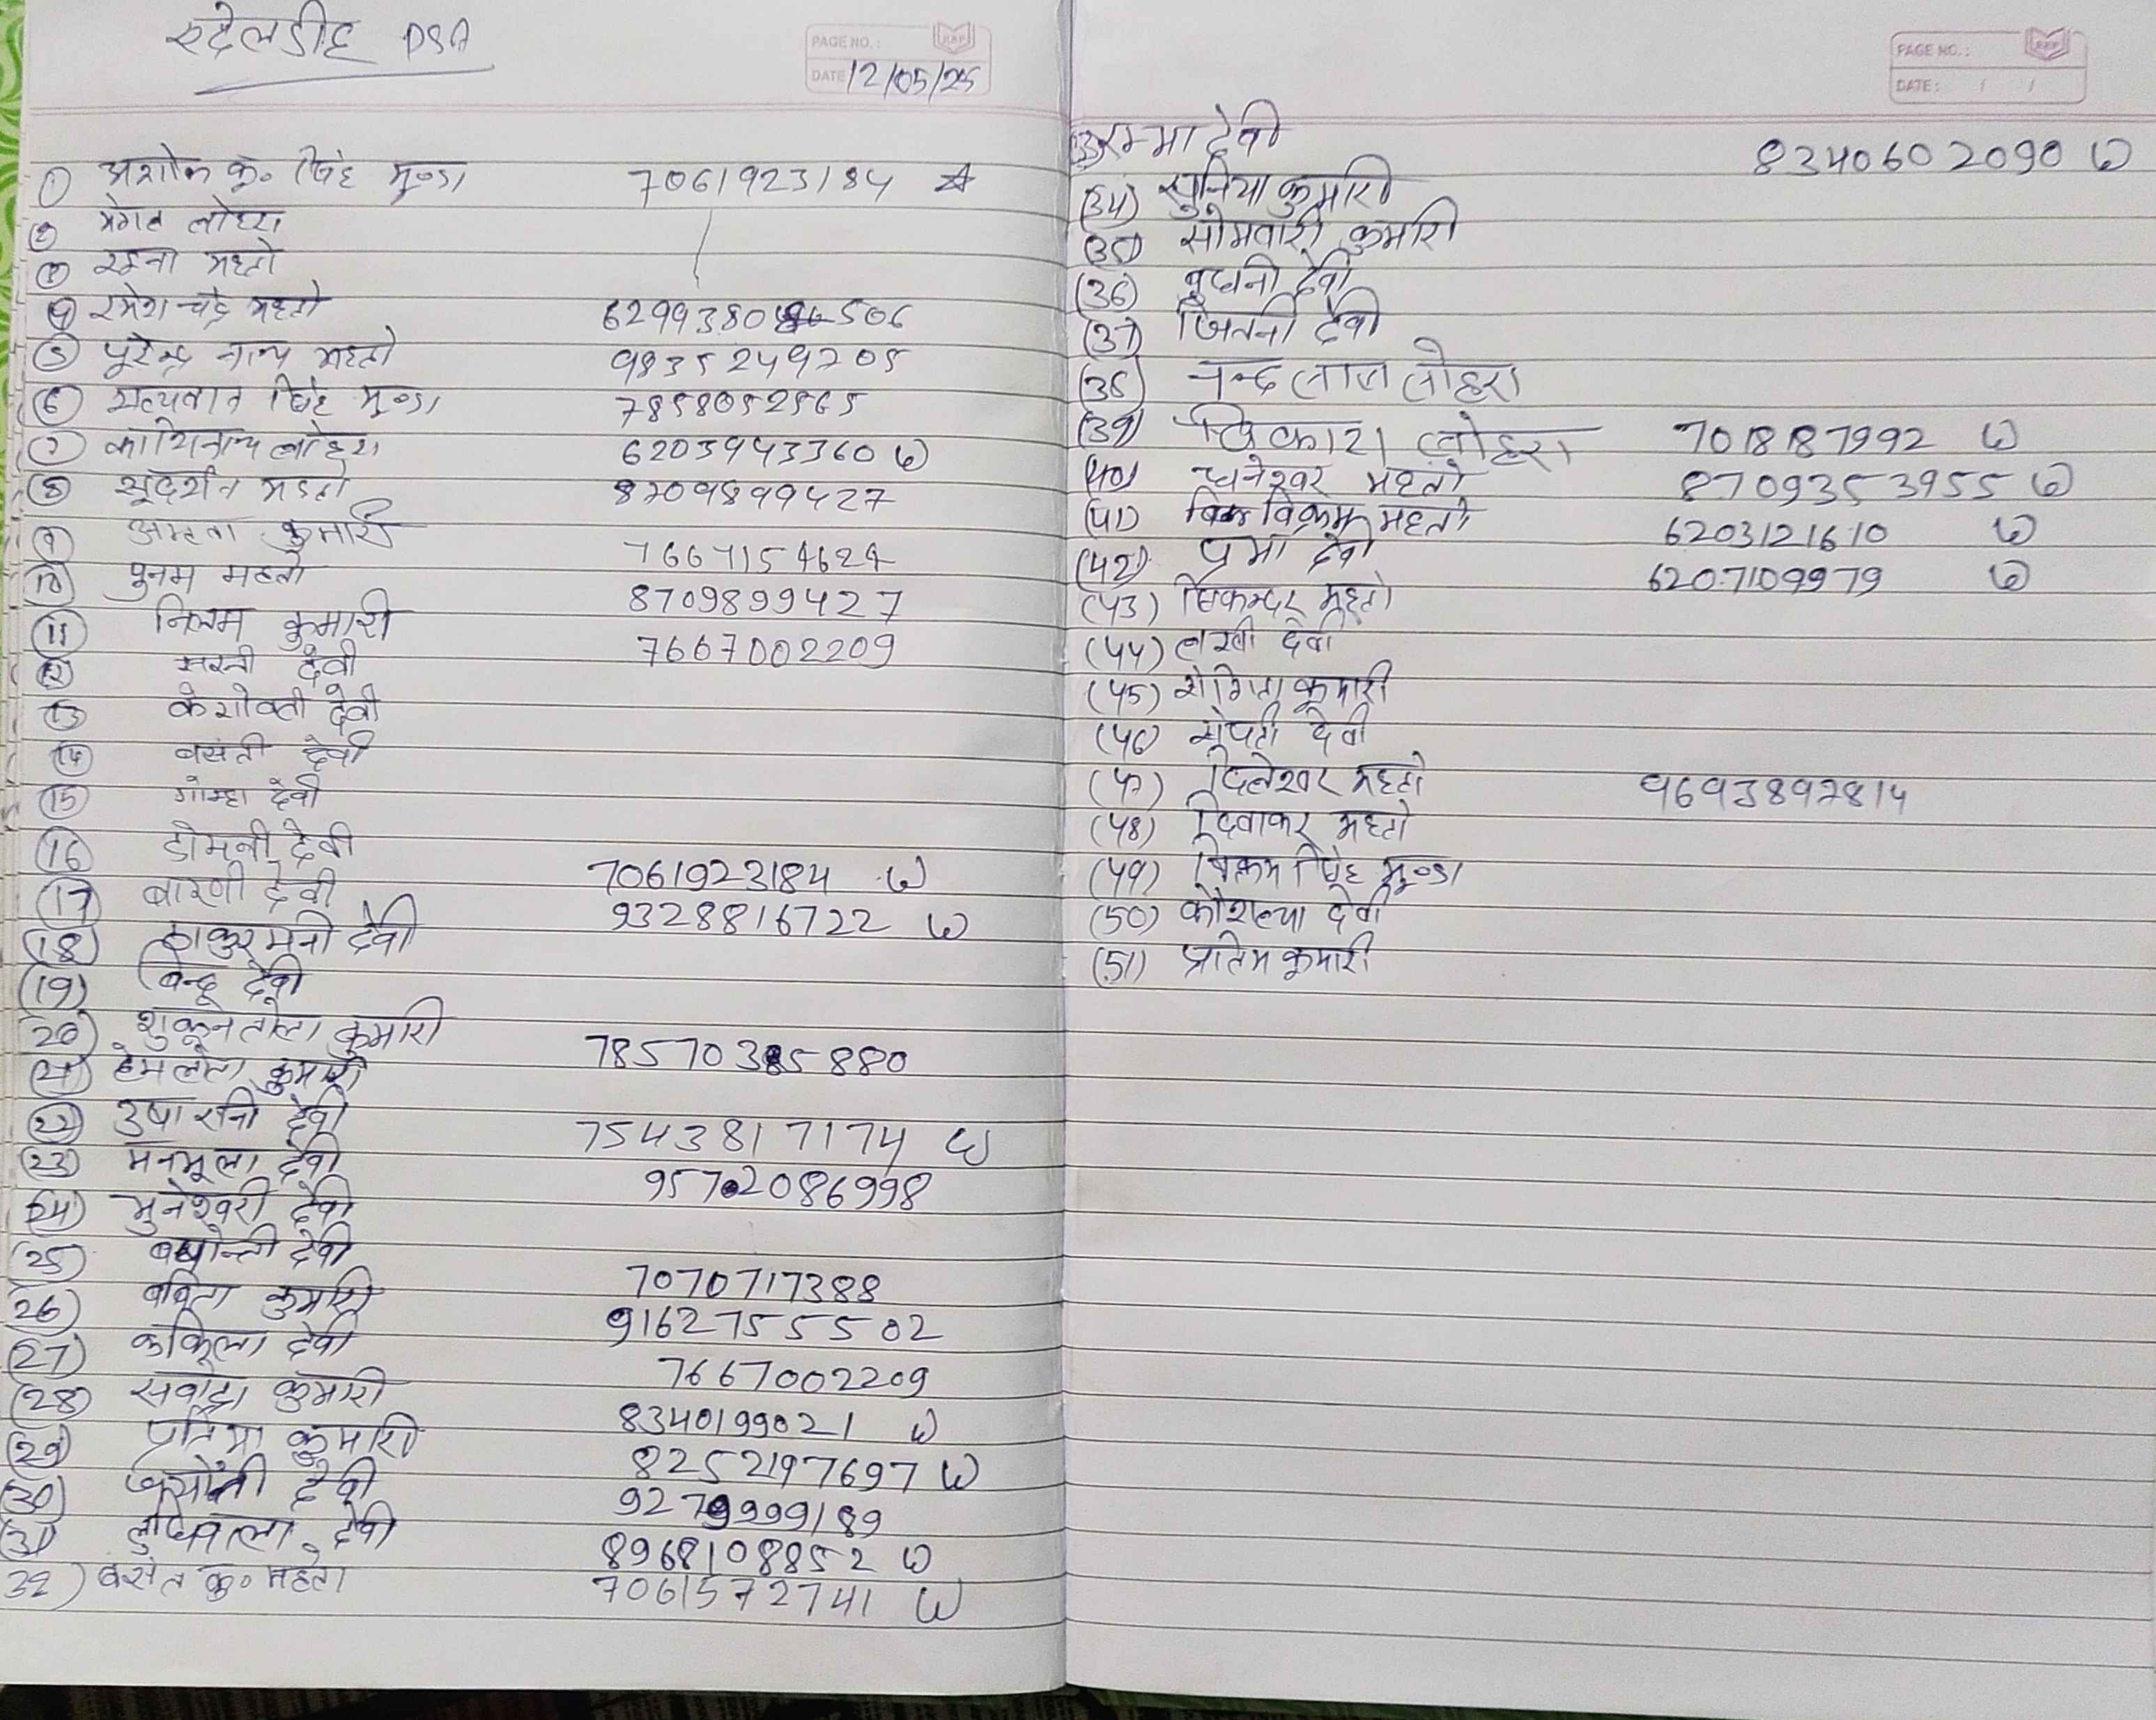 रुदेलडीह DSA
PAGE NO.:
DATE 12/05/25
① अशोक कु० सिंह मुण्डा 7061923184
② मंगल लोहरा
③ रइना महतो
④ रमेश चन्द्र महतो 6299380506
⑤ पुरेन्द्र नाथ महतो 9835249705
⑥ सत्यवान सिंह मुण्डा 7858052565
⑦ काशिनाथ लोहरा 6205943360 W
⑧ सुदर्शन महतो 8709899427
⑨ अमृता कुमारी 7667154624
⑩ पुनम महतो 8709899427
⑪ निलम कुमारी 7667002209
⑫ सरनी देवी
⑬ केशोवती देवी
⑭ बसंती देवी
⑮ गोम्हा देवी
⑯ डोमनी देवी 7061923184 W
⑰ बारणी देवी 9328816722 W
(18) ठाकुरमनी देवी
(19) बिन्दू देवी
20) शुकूनतोला कुमारी 7857035880
(21) हेमलता कुमारी
(22) उषा रानी देवी 7543817174 W
(23) मनभूला देवी 9572086998
(24) मुनेश्वरी देवी
(25) बसोन्ती देवी 7070717388
26) बबिता कुमारी 9162755502
(27) कोकिला देवी 7667002209
(28) सबोद्रा कुमारी 8340199021 W
(29) प्रतिमा कुमारी 8252197697 W
(30) जयोंती देवी 9279999189
(31) देवी 8968108852 W
32) बसंत कु० महतो 7061572741 W
PAGE NO.:
DATE: / /
(33) रम्भा देवी 8340602090 W
(34) सुनिया कुमारी
(35) सोमवारी कुमारी
(36) बुधनी देवी
(37) जितनी देवी
(38) नन्दलाल लोहरा
(39) विकाश लोहरा 7018187992 W
(40) धनेश्वर महतो 8709353955 W
(41) विक्रम महतो 6203121610 W
(42) प्रभा देवी 6207109979 W
(43) सिकन्दर महतो
(44) लखी देवी
(45) शोगिता कुमारी
(46) सुपती देवी
(47) दिलेश्वर महतो 9693897814
(48) दिवाकर महतो
(49) विक्रम सिंह मुण्डा
(50) कौशल्या देवी
(51) प्रतिम कुमारी